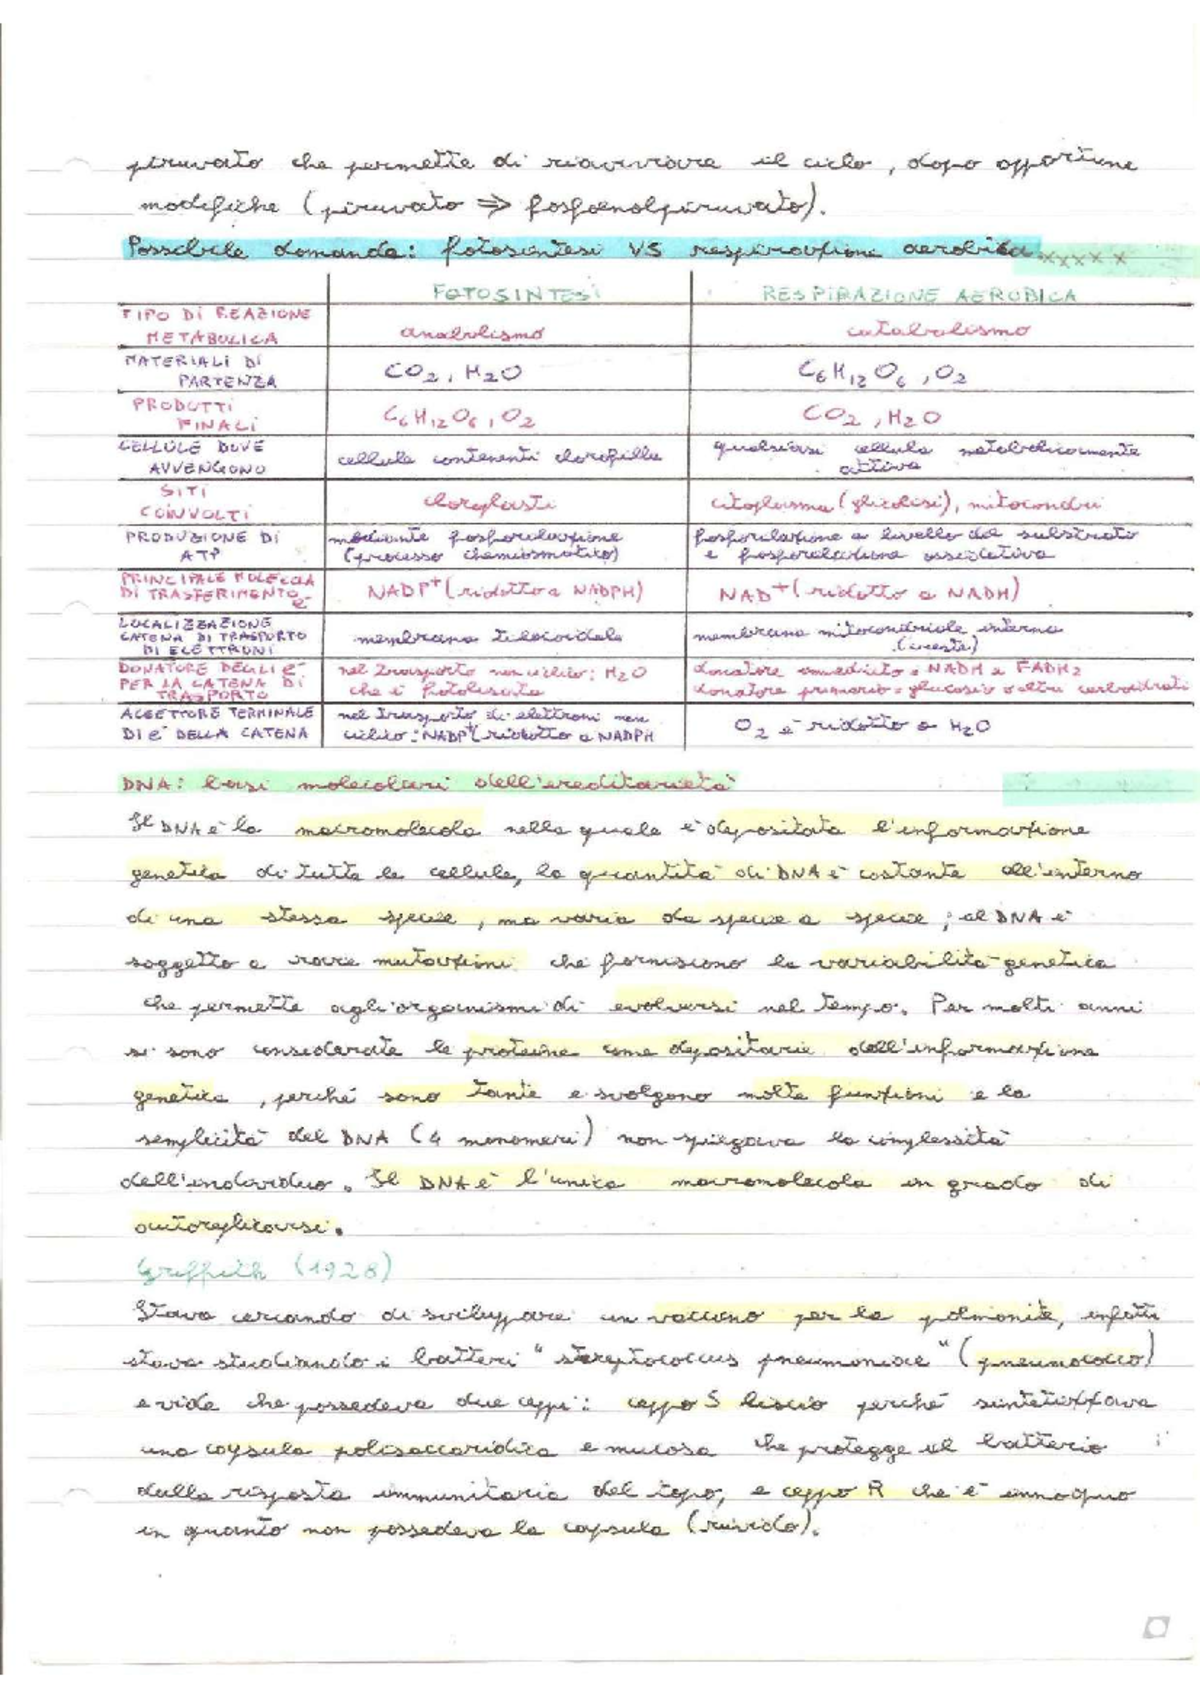 piruvato che permette di riavviare il ciclo, dopo opportune
modifiche (piruvato ⇒ fosfoenolpiruvato).
Possibile domanda: fotosintesi VS respirazione aerobica. xxxxx
FOTOSINTESI RESPIRAZIONE AEROBICA
TIPO DI REAZIONE
METABOLICA anabolismo catabolismo
MATERIALI DI
PARTENZA CO2, H2O C6H12O6, O2
PRODOTTI
FINALI C6H12O6, O2 CO2, H2O
CELLULE DOVE
AVVENGONO cellule contenenti clorofilla qualsiasi cellula metabolicamente
attiva
SITI
COINVOLTI cloroplasti citoplasma (glicolisi), mitocondri
PRODUZIONE DI
ATP mediante fosforilazione
(processo chemiosmotico) fosforilazione a livello del substrato
e fosforilazione ossidativa
PRINCIPALE MOLECOLA
DI TRASFERIMENTO e- NADP+ (ridotto a NADPH) NAD+ (ridotto a NADH)
LOCALIZZAZIONE
CATENA DI TRASPORTO
DI ELETTRONI membrana tilacoidale membrana mitocondriale interna
(creste)
DONATORE DEGLI e-
PER LA CATENA DI
TRASPORTO nel trasporto non ciclico: H2O
che è fotolisata donatore immediato: NADH e FADH2
donatore primario = glucosio o altri carboidrati
ACCETTORE TERMINALE
DI e- DELLA CATENA nel trasporto di elettroni non
ciclico: NADP+ (ridotto a NADPH O2 è ridotto a H2O
DNA: basi molecolari dell'ereditarietà
Il DNA è la macromolecola nella quale è depositata l'informazione
genetica di tutte le cellule, la quantità di DNA è costante all'interno
di una stessa specie, ma varia da specie a specie; il DNA è
soggetto a rare mutazioni che forniscono la variabilità genetica
che permette agli organismi di evolversi nel tempo. Per molti anni
si sono considerate le proteine come depositarie dell'informazione
genetica, perché sono tante e svolgono molte funzioni e la
semplicità del DNA (4 monomeri) non spiegava la complessità
dell'individuo. Il DNA è l'unica macromolecola in grado di
autoreplicarsi.
Griffith (1928)
Stava cercando di sviluppare un vaccino per la polmonite, infatti
stava studiando i batteri "streptococcus pneumoniae" (pneumococco)
e vide che possedeva due ceppi: ceppo S liscio perché sintetizzava
una capsula polisaccaridica e mucosa che protegge il batterio
dalla risposta immunitaria del topo, e ceppo R che è innoquo
in quanto non possedeva la capsula (ruvido).